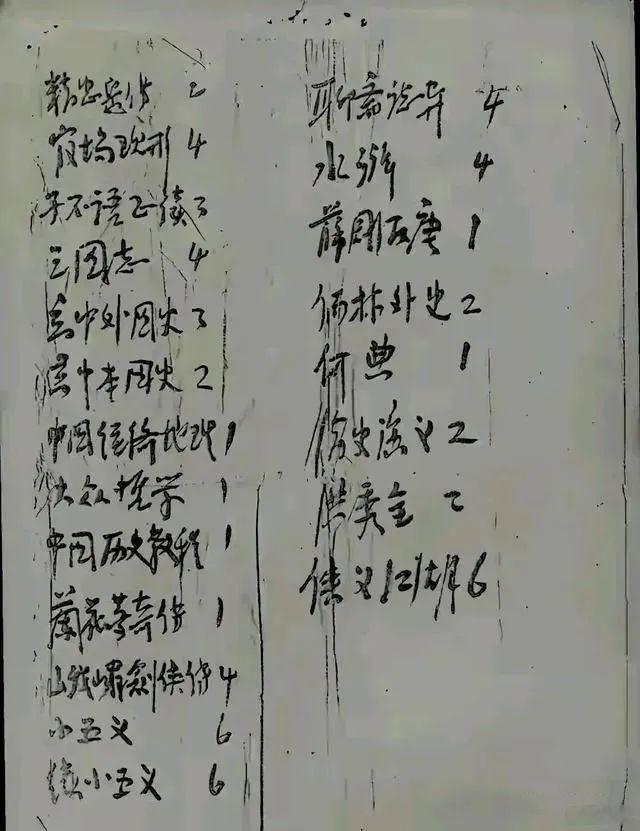 精忠岳传 2
官场现形 4
子不语正续 3
三国志 4
高中外国史 3
高中本国史 2
中国经济地理 1
大众哲学 1
中国历史教程 1
兰花梦奇传 1
峨嵋剑侠传 4
小五义 6
续小五义 6
聊斋志异 4
水浒 4
薛刚反唐 1
儒林外史 2
何典 1
俊史演义 2
洪秀全 2
侠义江湖 6